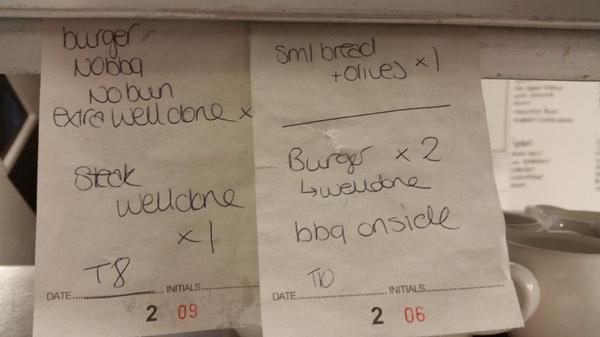 burger
No bbq
No bun
extra well done x
Steak
well done
x 1
T8
DATE INITIALS
2 09
sml bread
+ olives x 1
Burger x 2
↳ well done
bbq on side
T10
DATE INITIALS
2 06